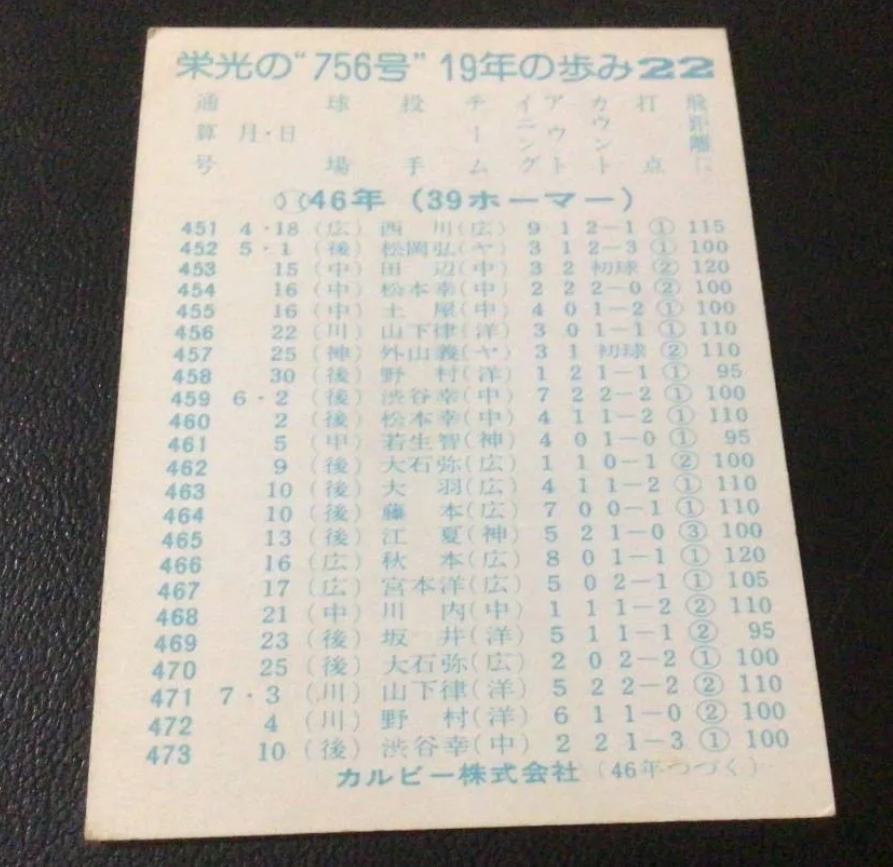 栄光の“756号”19年の歩み22
通算号 月・日 球場 投手 チーム イニング アウト カウント 打点 飛距離
46年(39ホーマー)
451 4・18(広) 西川(広) 9 1 2-1 ① 115
452 5・1(後) 松岡弘(ヤ) 3 1 2-3 ① 100
453 15(中) 田辺(中) 3 2 初球 ② 120
454 16(中) 松本幸(中) 2 2 2-0 ② 100
455 16(中) 土屋(中) 4 0 1-2 ① 100
456 22(川) 山下律(洋) 3 0 1-1 ① 110
457 25(神) 外山義(ヤ) 3 1 初球 ② 110
458 30(後) 野村(洋) 1 2 1-1 ① 95
459 6・2(後) 渋谷幸(中) 7 2 2-2 ① 100
460 2(後) 松本幸(中) 4 1 1-2 ① 110
461 5(甲) 若生智(神) 4 0 1-0 ① 95
462 9(後) 大石弥(広) 1 1 0-1 ② 100
463 10(後) 大羽(広) 4 1 1-2 ① 110
464 10(後) 藤本(広) 7 0 0-1 ① 110
465 13(後) 江夏(神) 5 2 1-0 ③ 100
466 16(広) 秋本(広) 8 0 1-1 ① 120
467 17(広) 宮本洋(広) 5 0 2-1 ① 105
468 21(中) 川内(中) 1 1 1-2 ② 110
469 23(後) 坂井(洋) 5 1 1-1 ② 95
470 25(後) 大石弥(広) 2 0 2-2 ① 100
471 7・3(川) 山下律(洋) 5 2 2-2 ② 110
472 4(川) 野村(洋) 6 1 1-0 ② 100
473 10(後) 渋谷幸(中) 2 2 1-3 ① 100
カルビー株式会社(46年つづく)